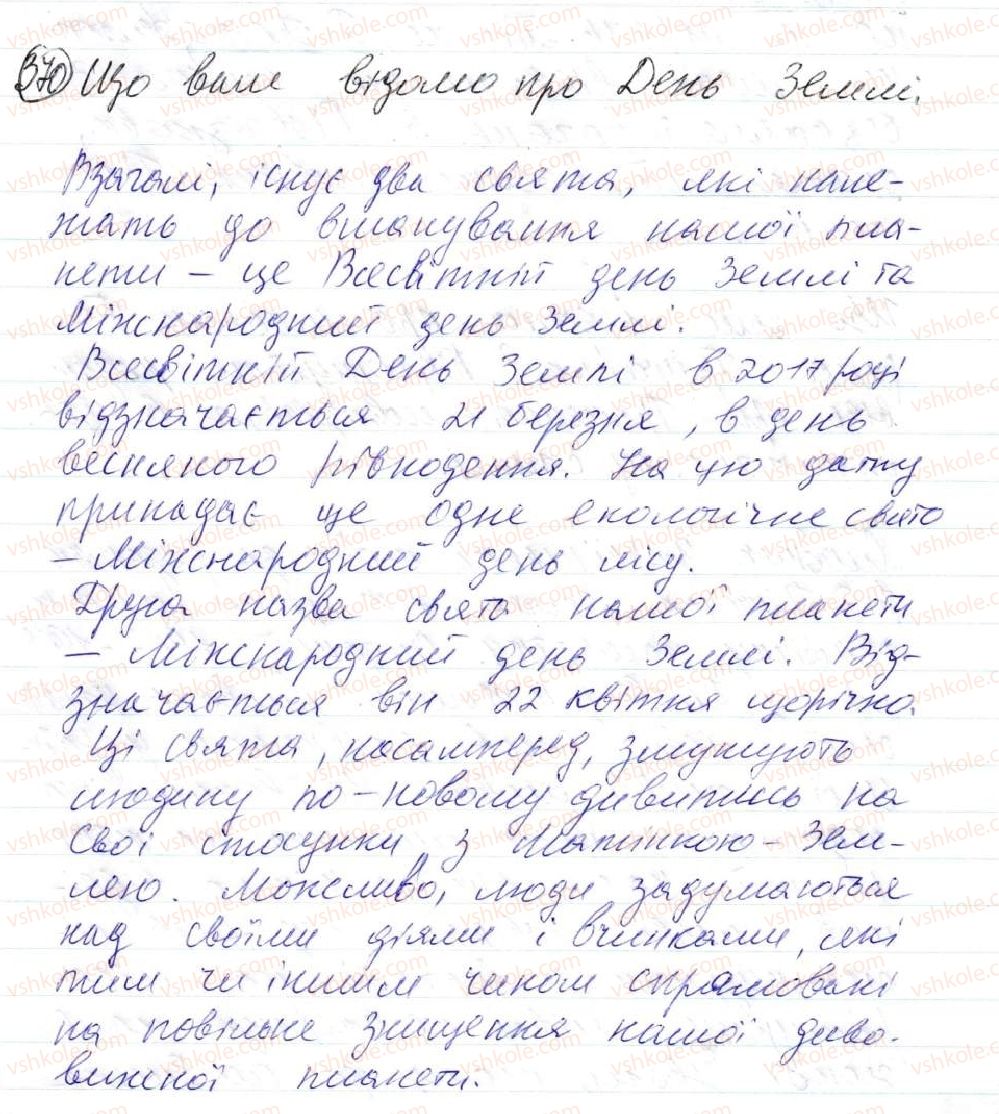 370 Що вам відомо про День Землі.
Взагалі, існує два свята, які нале-
жать до вшанування нашої пла-
нети – це Всесвітній день Землі та
Міжнародний день Землі.
Всесвітній День Землі в 2017 році
відзначається 21 березня, в день
весняного рівнодення. На цю дату
припадає ще одне екологічне свято
– Міжнародний день лісу.
Друга назва свята нашої планети
– Міжнародний день Землі. Від-
значається він 22 квітня щорічно.
Ці свята, насамперед, змушують
людину по-новому дивитись на
свої стосунки з Матінкою-Зем-
лею. Можливо, люди задумаються
над своїми діями і вчинками, які
тим чи іншим чином спрямовані
на повільне знищення нашої диво-
вижної планети.